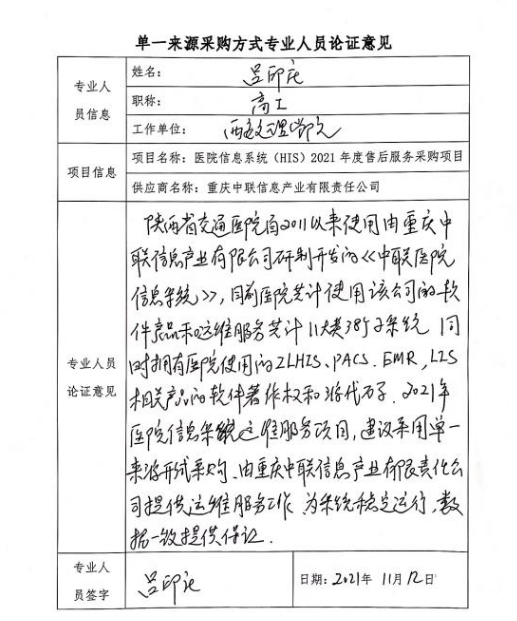 单一来源采购方式专业人员论证意见
专业人员信息
姓名：吕印
职称：高工
工作单位：西安文理学院
项目信息
项目名称：医院信息系统（HIS）2021 年度售后服务采购项目
供应商名称：重庆中联信息产业有限责任公司
专业人员论证意见
陕西省交通医院自2011以来使用由重庆中
联信息产业有限公司研制开发的《中联医院
信息系统》，目前医院共计使用该公司的软
件产品和运维服务共计11大类38个子系统 同
时拥有医院使用的ZLHIS、PACS、EMR、LIS
相关产品的软件著作权和源代码。2021年
医院信息系统运维服务项目，建议采用单一
来源式采购，由重庆中联信息产业有限责任公
司提供运维服务工作，为系统稳定运行，数
据一致提供保证.
专业人员签字
吕印
日期：2021年 11月 12日